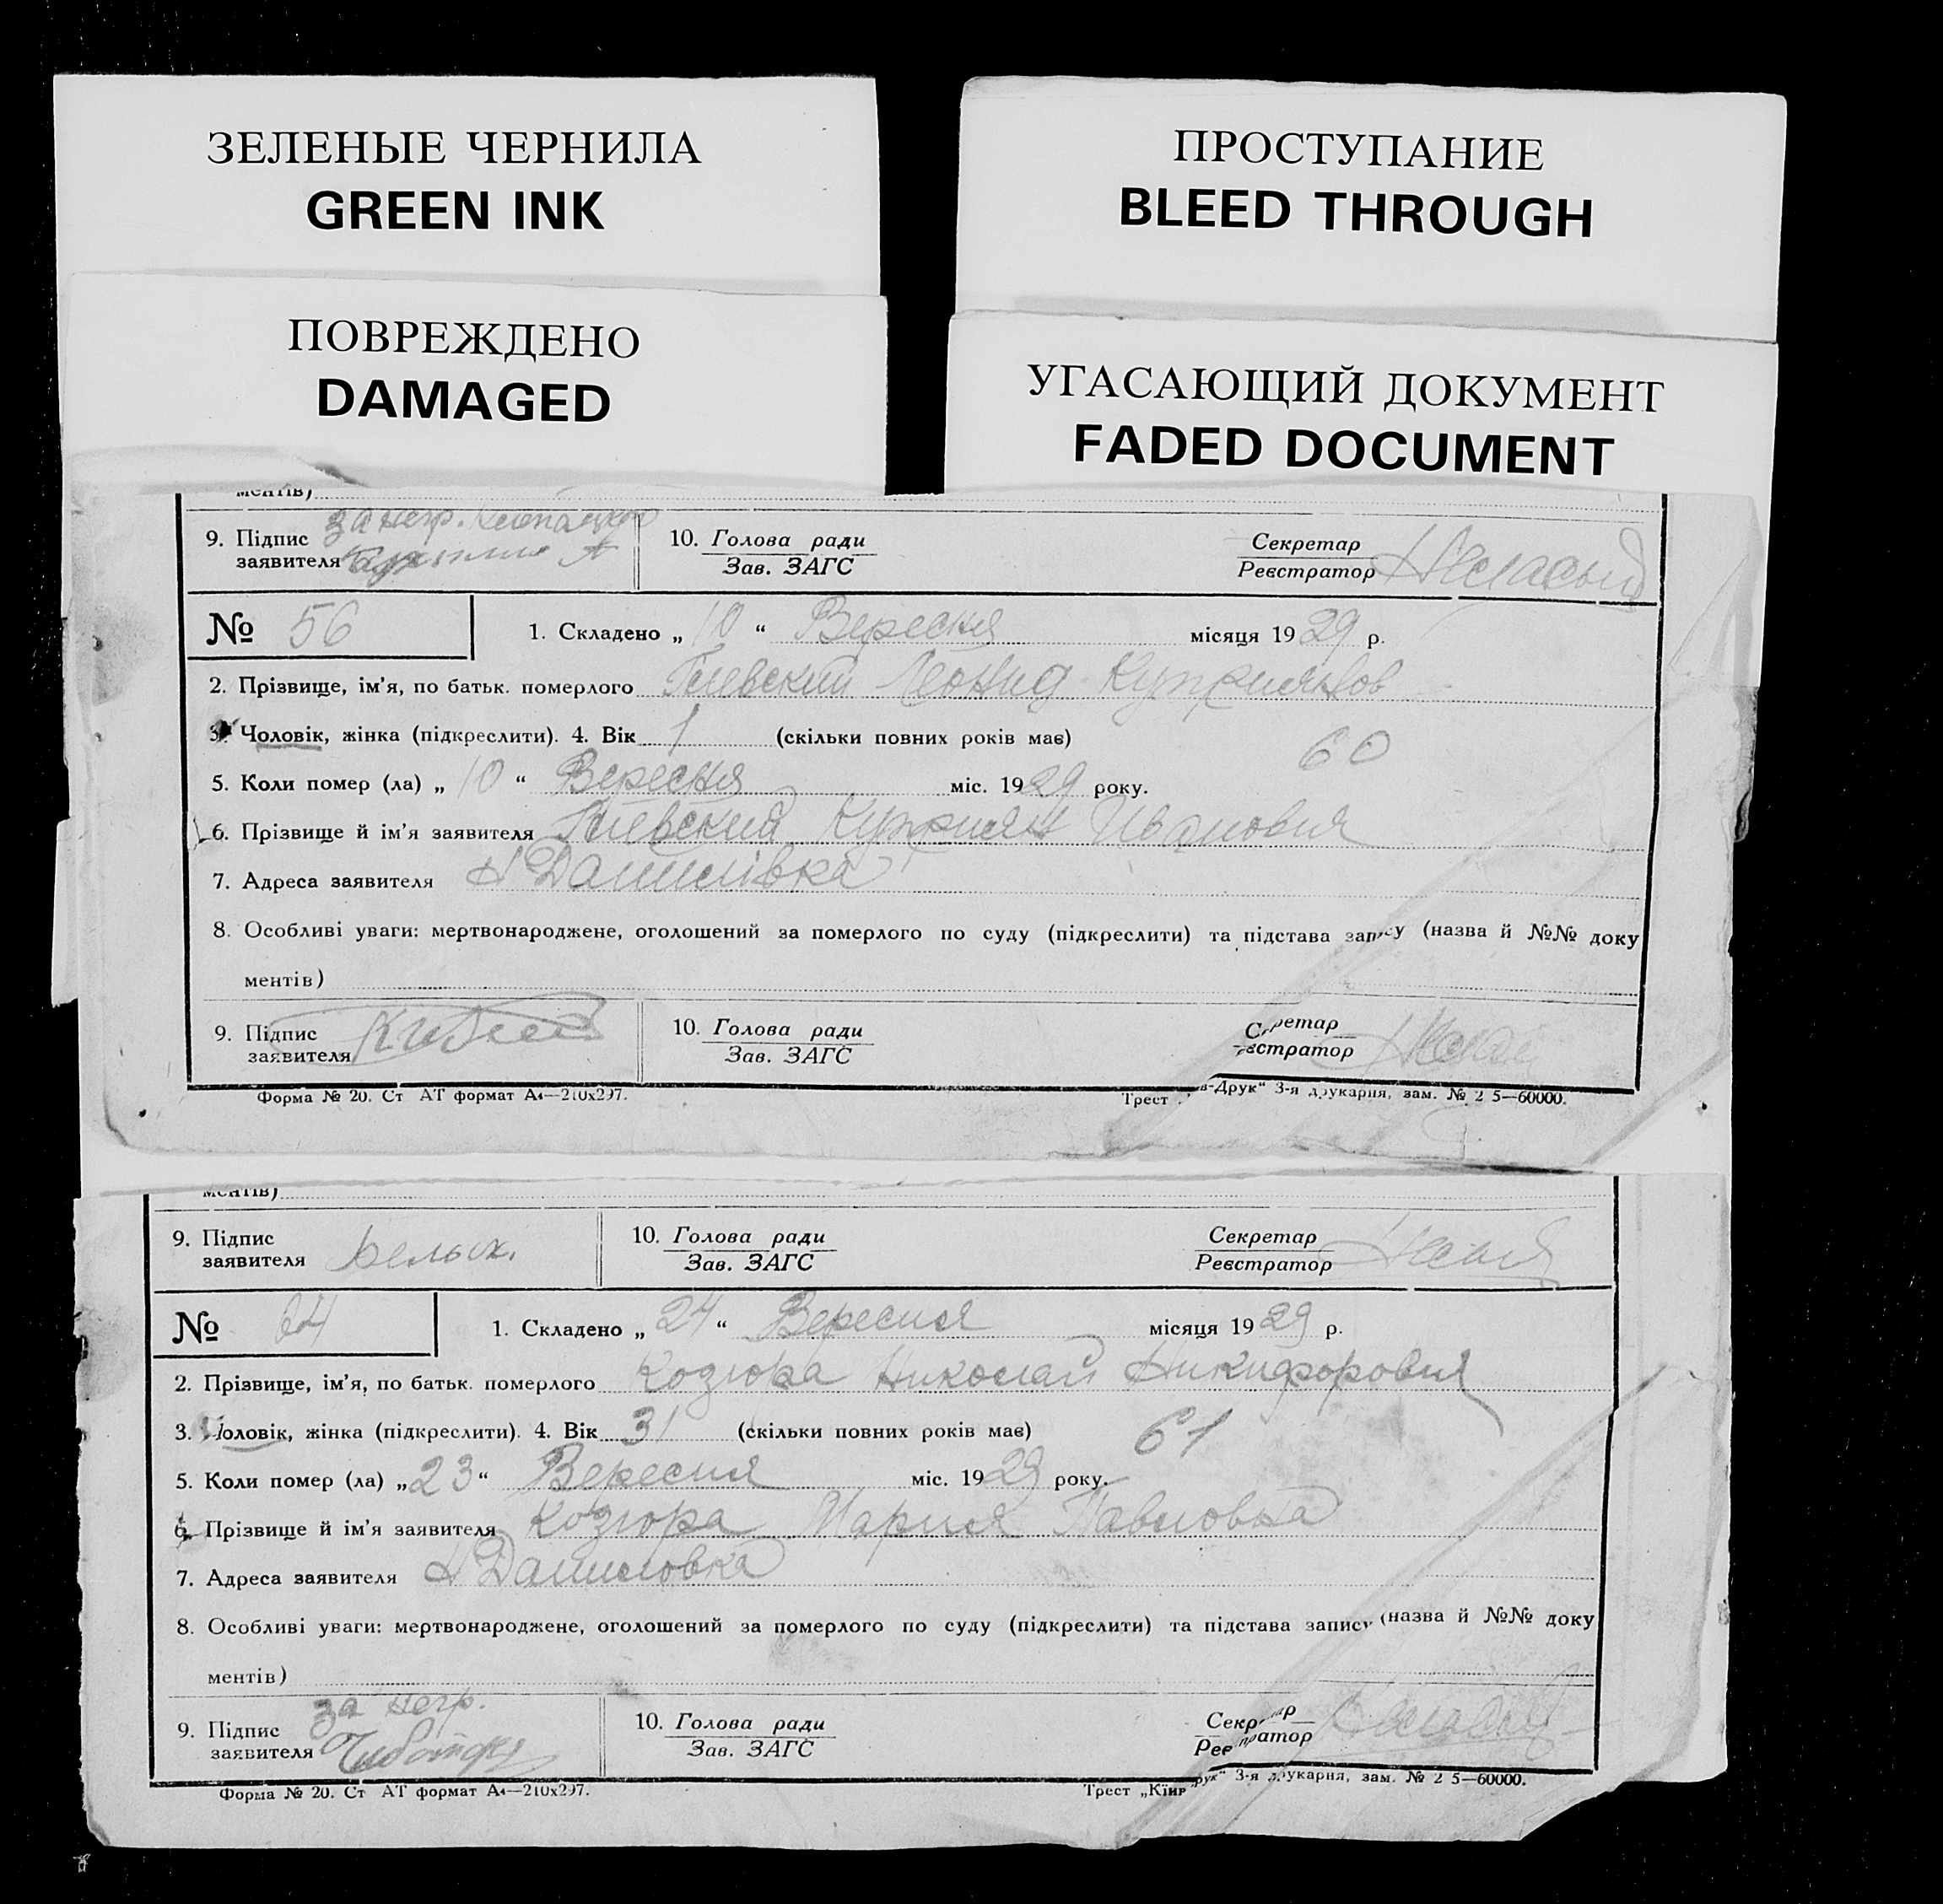 ЗЕЛЕНЫЕ ЧЕРНИЛА
GREEN INK
ПРОСТУПАНИЕ
BLEED THROUGH
ПОВРЕЖДЕНО
DAMAGED
УГАСАЮЩИЙ ДОКУМЕНТ
FADED DOCUMENT
ментів)
9. Підпис заявителя за негр. 10. Голова ради Зав. ЗАГС Секретар Реєстратор
№ 56 1. Складено „ 10 “ Вересня місяця 1929 р.
2. Прізвище, ім'я, по батьк. померлого Леонид Куприянов
3. Чоловік, жінка (підкреслити). 4. Вік 1 (скільки повних років має)
60
5. Коли помер (ла) „ 10 “ Вересня міс. 1929 року.
6. Прізвище й ім'я заявителя Куприян Иванович
7. Адреса заявителя Н Данилівка
8. Особливі уваги: мертвонароджене, оголошений за померлого по суду (підкреслити) та підстава запису (назва й №№ доку
ментів)
9. Підпис заявителя 10. Голова ради Зав. ЗАГС Секретар Реєстратор
Форма № 20. Ст АТ формат А4—210х297. Трест в-Друк“ 3-я друкарня, зам. № 2 5—60000.
ментів)
9. Підпис заявителя 10. Голова ради Зав. ЗАГС Секретар Реєстратор
№ 64 1. Складено „ 24 “ Вересня місяця 1929 р.
2. Прізвище, ім'я, по батьк. померлого Козюра Николай Никифорович
3. Чоловік, жінка (підкреслити). 4. Вік 31 (скільки повних років має)
61
5. Коли помер (ла) „23“ Вересня міс. 1929 року.
6. Прізвище й ім'я заявителя Козюра Мария Павловна
7. Адреса заявителя Н Даниловка
8. Особливі уваги: мертвонароджене, оголошений за померлого по суду (підкреслити) та підстава запису (назва й №№ доку
ментів)
9. Підпис заявителя за негр. 10. Голова ради Зав. ЗАГС Секретар Реєстратор
Форма № 20. Ст АТ формат А4—210х297. Трест „Київ друк“ 3-я друкарня, зам. № 2 5—60000.